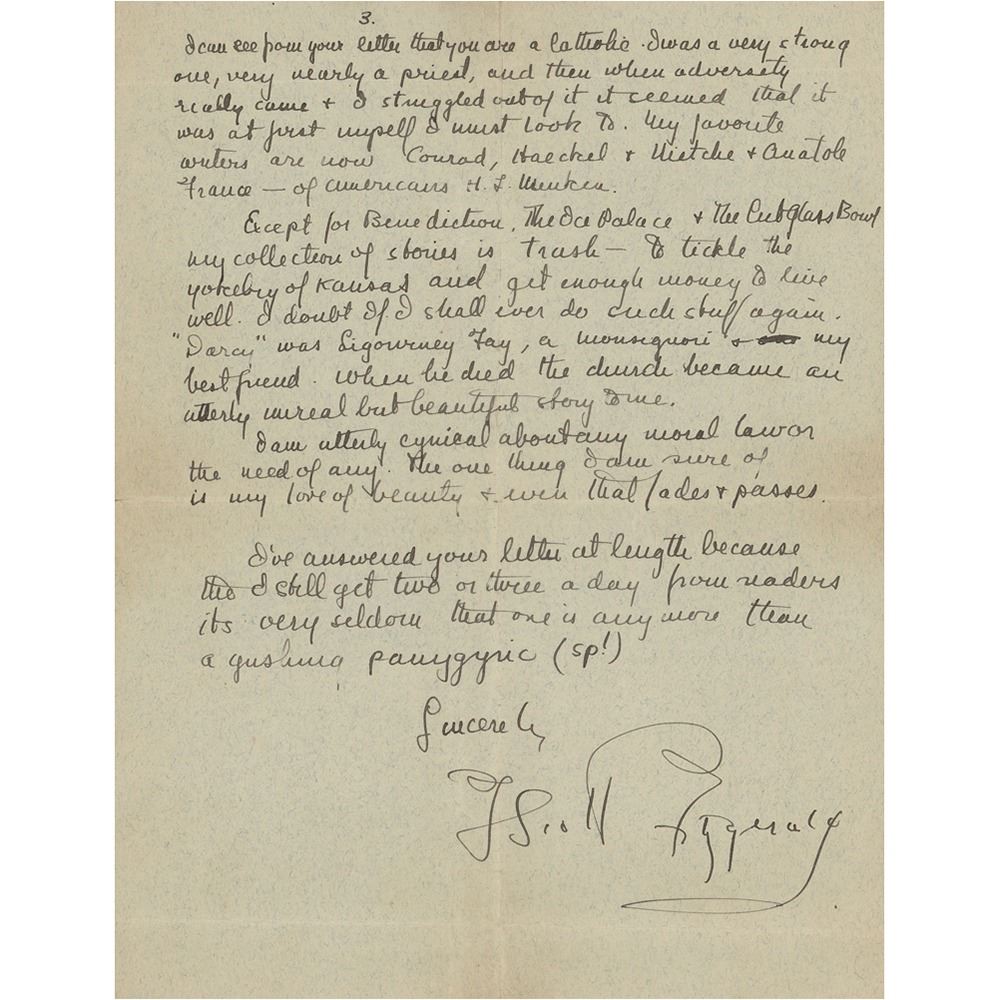 3.
I can see from your letter that you are a Catholic. I was a very strong
one, very nearly a priest, and then when adversity
really came + I struggled out of it it seemed that it
was at first myself I must look to. My favorite
writers are now Conrad, Haeckel + Nietche + Anatole
France — of Americans H. L. Menken.
Except for Benediction, The Ice Palace + The Cutglass Bowl
my collection of stories is trash — to tickle the
yokelry of Kansas and get enough money to live
well. I doubt if I shall ever do such stuff again.
"Darcy" was Sigourney Fay, a monsignori + my
best friend. When he died the church became an
utterly unreal but beautiful story to me.
I am utterly cynical about any moral law or
the need of any. The one thing I am sure of
is my love of beauty + even that fades + passes.
I've answered your letter at length because
tho I still get two or three a day from readers
its very seldom that one is any more than
a gushing panygyric (sp!)
Sincerely
F Scott Fitzgerald